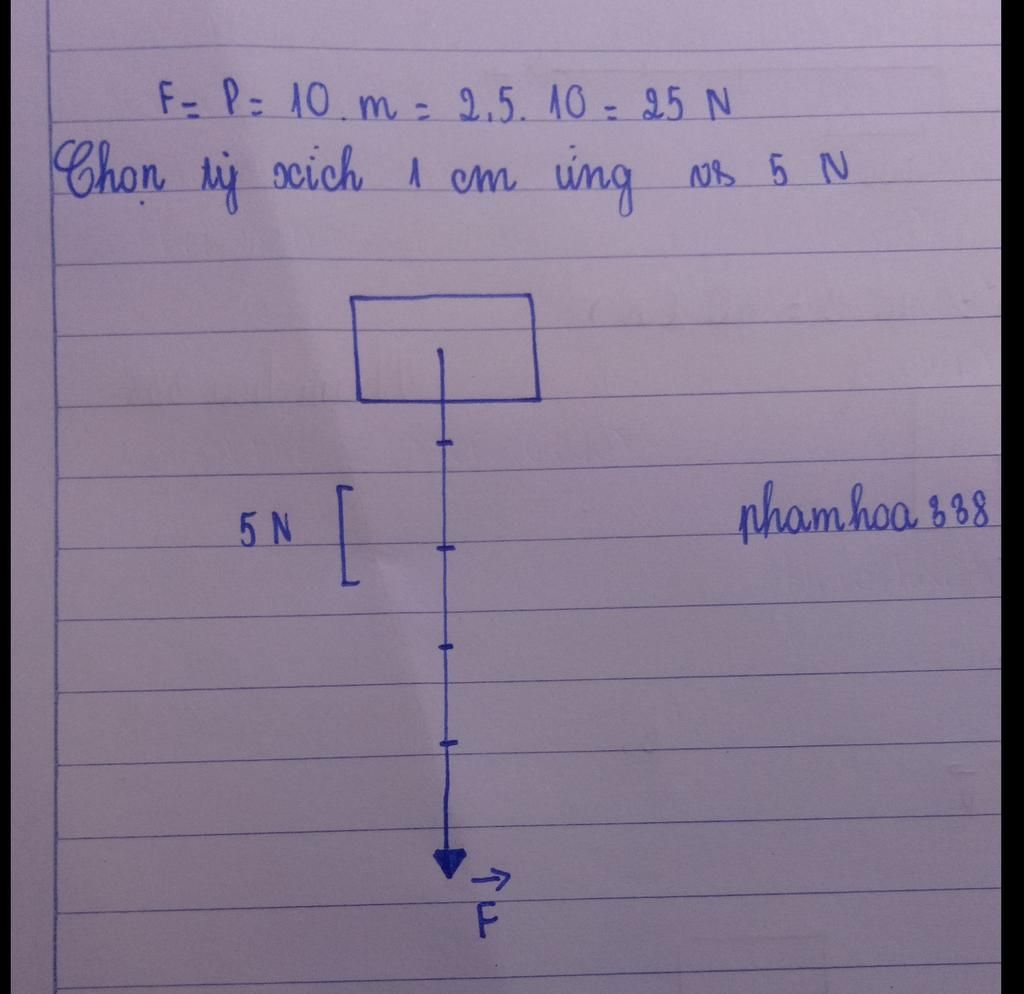 F = P = 10 . m = 2,5 . 10 = 25 N
Chọn tỷ xích 1 cm ứng vs 5 N
5 N
phamhoa338
F